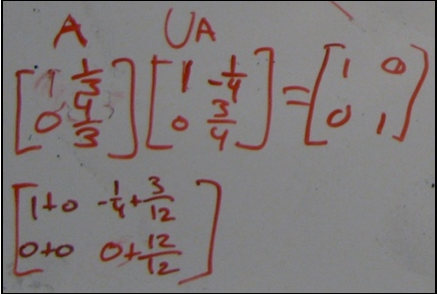 A UA
[1 1/3; 0 4/3] [1 -1/4; 0 3/4] = [1 0; 0 1]
[1+0 -1/4+3/12; 0+0 0+12/12]